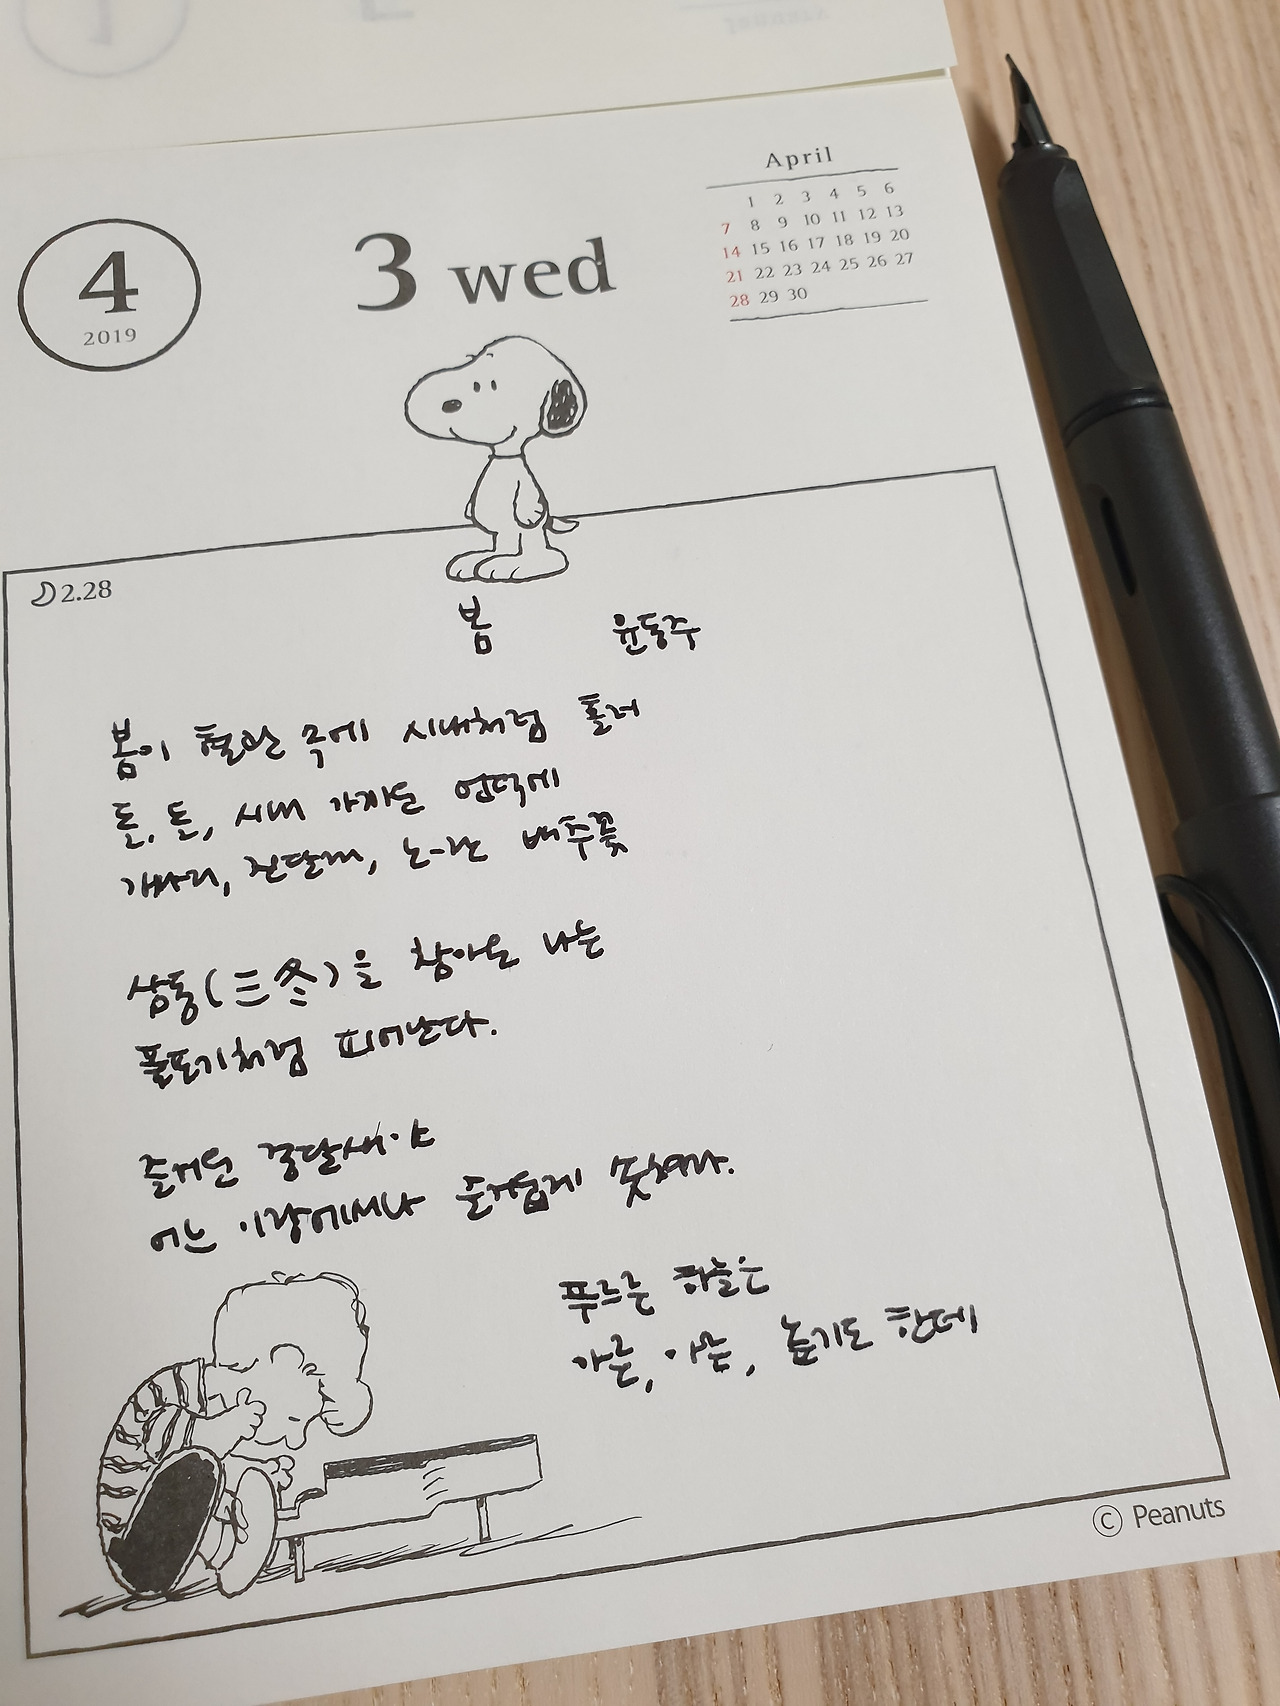 April
1 2 3 4 5 6
7 8 9 10 11 12 13
14 15 16 17 18 19 20
21 22 23 24 25 26 27
28 29 30
4
2019
3 wed
2.28
봄 윤동주
봄이 혈관 속에 시내처럼 흘러
돌, 돌, 시내 가차운 언덕에
개나리, 진달래, 노-란 배추꽃
삼동(三冬)을 참아온 나는
풀포기처럼 피어난다.
즐거운 종달새야
어느 이랑에서나 즐겁게 솟쳐라.
푸르른 하늘은
아른, 아른, 높기도 한데
© Peanuts